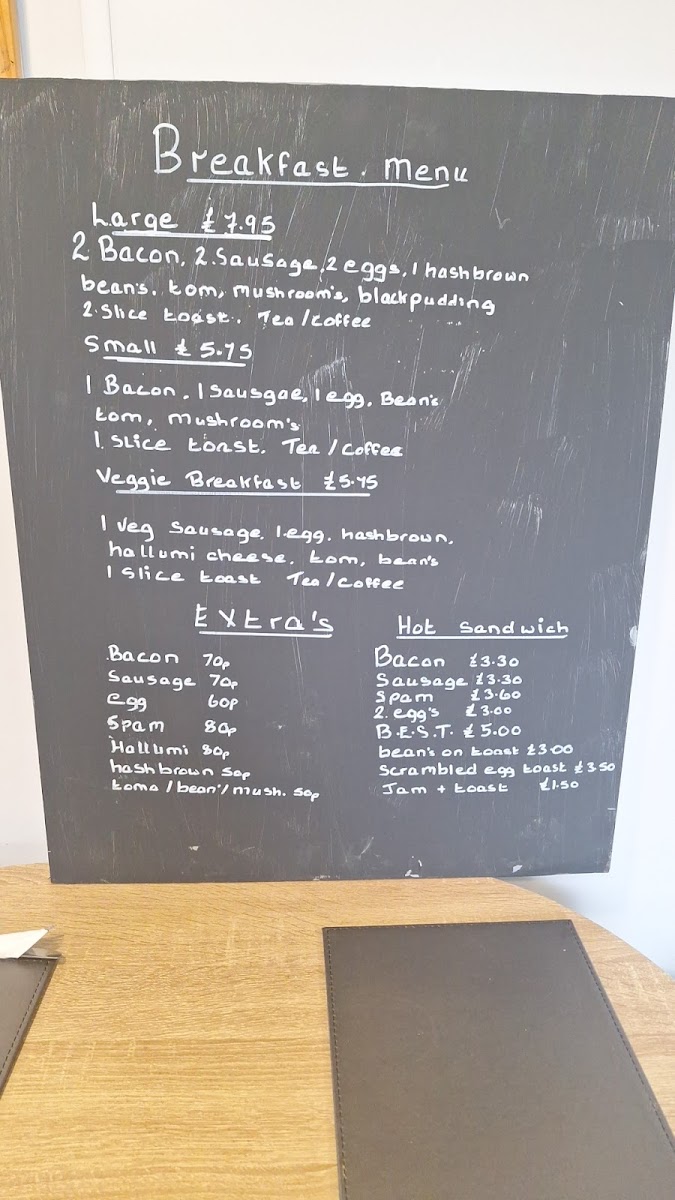 Breakfast. Menu
Large £7.95
2 Bacon, 2.Sausage, 2 eggs, 1 hashbrown
bean's. tom, mushroom's, blackpudding
2.Slice toast. Tea/Coffee
Small £5.75
1 Bacon, 1 Sausgae, 1 egg, Bean's
tom, mushroom's
1. Slice toast. Tea/Coffee
Veggie Breakfast £5.75
1 Veg Sausage, 1.egg, hashbrown,
hallumi cheese, tom, bean's
1 Slice toast Tea/Coffee
Extra's
Bacon 70p
Sausage 70p
egg 60p
Spam 80p
Hallumi 80p
hashbrown 50p
toma/bean'/mush. 50p
Hot Sandwich
Bacon £3.30
Sausage £3.30
Spam £3.60
2. egg's £3.00
B.E.S.T. £5.00
bean's on toast £3.00
Scrambled egg toast £3.50
Jam + toast £1.50